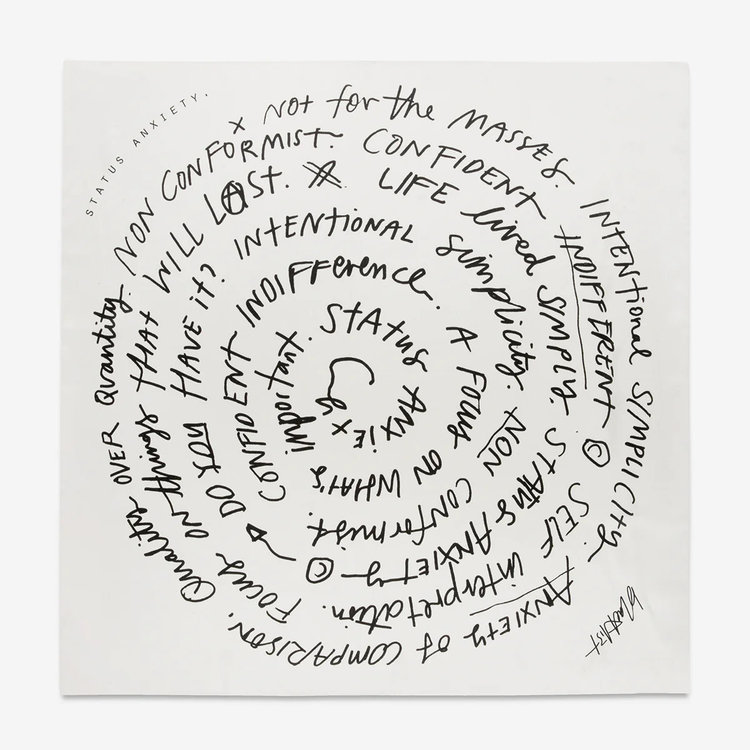 STATUS ANXIETY.
x NOT for the MASSES. INTENTIONAL SIMPLICITY. ANXIETY OF COMPARISON. Quality OVER Quantity.
NON CONFORMIST. CONFIDENT INDIFFERENT © SELF interpretation. Focus ON things THAT WILL LAST.
LIFE lived SIMPLY. STATUS ANXIETY © DO YOU HAVE IT?
INTENTIONAL simplicity. NON CONFORMIST. CONFIDENT INDIFFerence.
A FOCUS ON WHAT'S important.
STATUS